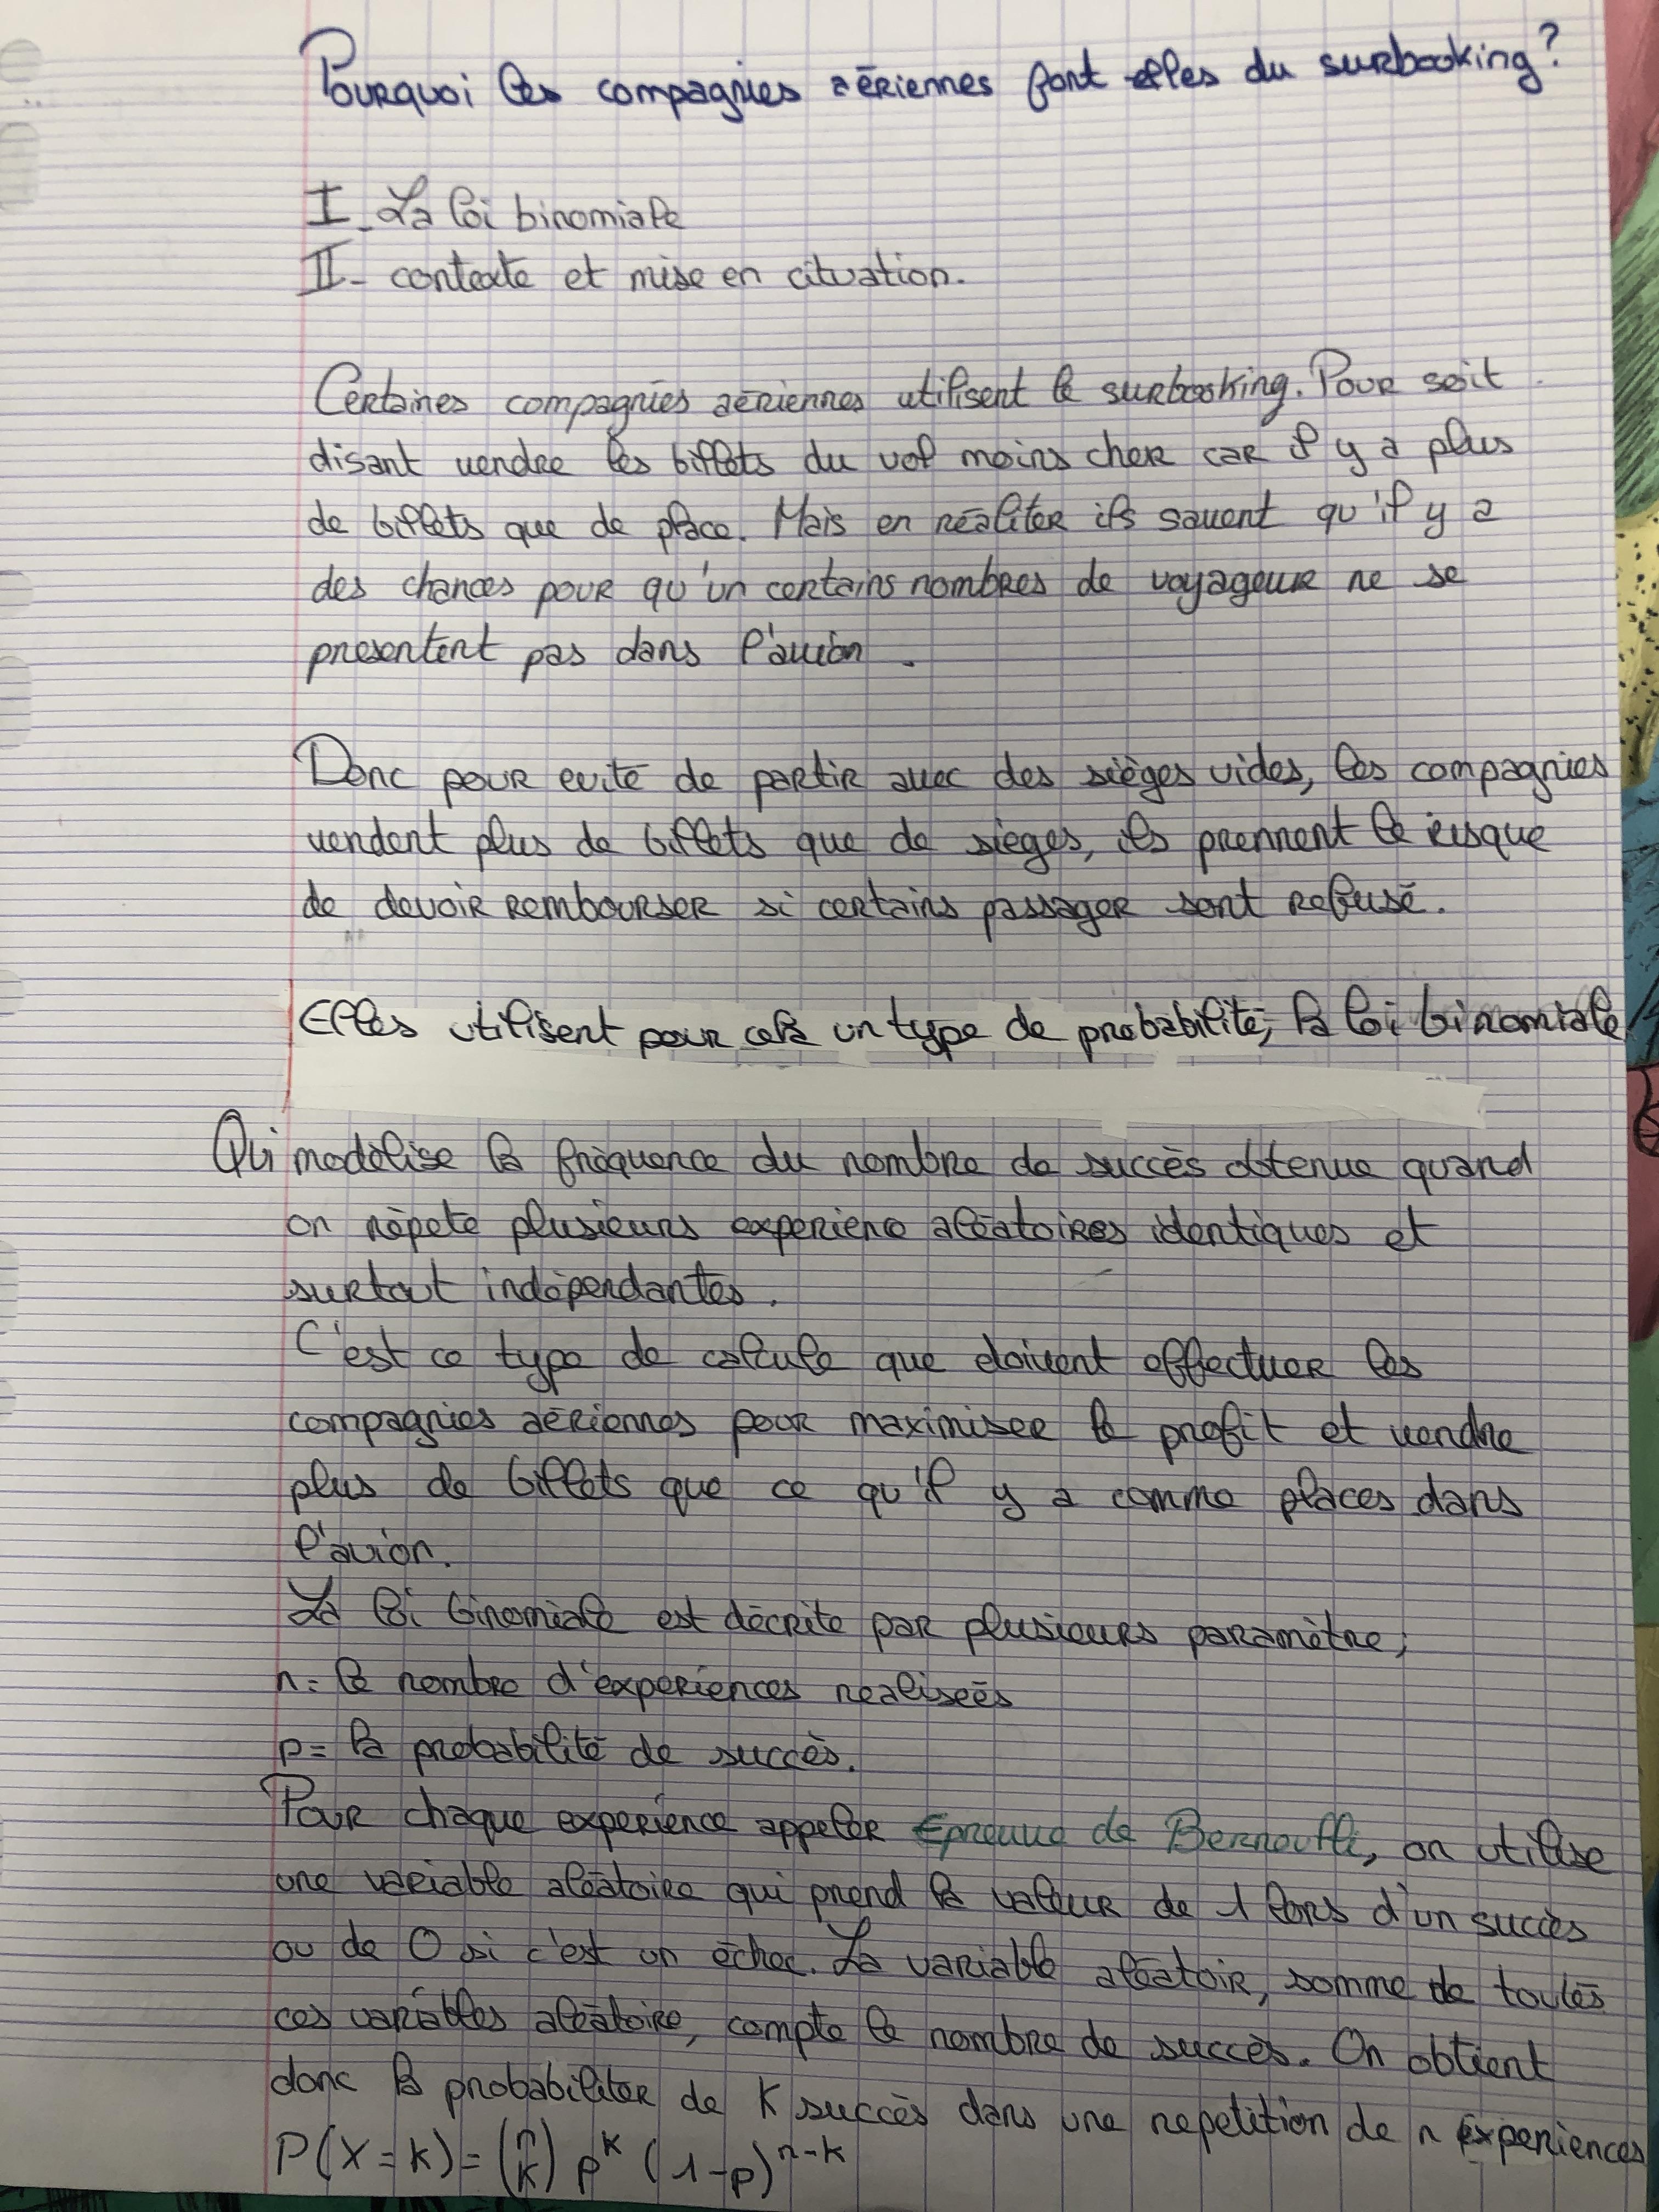 Pourquoi les compagnies aériennes font elles du surbooking?
I - La loi binomiale
II - contexte et mise en cituation.
Certaines compagnies aériennes utilisent le surbooking. Pour soit
disant vendre les billets du vol moins cher car il y a plus
de billets que de place. Mais en réaliter ils savent qu'il y a
des chances pour qu'un certains nombres de voyageur ne se
presentent pas dans l'avion.
Donc pour evité de partir avec des sièges vides, les compagnies
vendent plus de billets que de sièges, ils prennent le risque
de devoir rembourser si certains passager sont refusé.
Elles utilisent pour cela un type de probabilité, la loi binomiale
Qui modélise la fréquence du nombre de succès obtenue quand
on répete plusieurs experienc aléatoires identiques et
surtout indépendantes.
C'est ce type de calcule que doivent effectuer les
compagnies aériennes pour maximiser le profit et vendre
plus de billets que ce qu'il y a comme places dans
l'avion.
La loi binomiale est décrite par plusieurs paramètre;
n= le nombre d'experiences realiseés
p= la probabilité de succès.
Pour chaque experience appeler Epreuve de Bernoulli, on utilise
une variable aléatoire qui prend la valeur de 1 lors d'un succès
ou de 0 si c'est un échec. La variable aléatoir, somme de toutes
ces variables aléatoire, compte le nombre de succès. On obtient
donc la probabiliter de K succès dans une repetition de n experiences
P(X=k)=(n k) p^k (1-p)^n-k